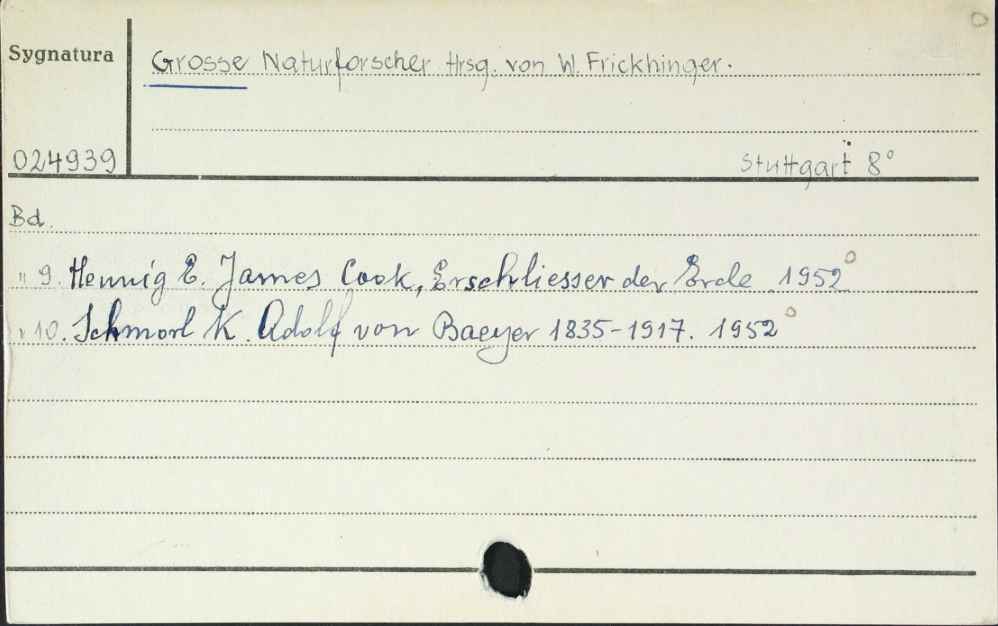 Sygnatura
Grosse Naturforscher Hrsg. von W. Frickhinger.
024939
Stuttgart 8°
Bd.
" 9. Hennig E. James Cook, Erschliesser der Erde 1952°
" 10. Schmorl K. Adolf von Baeyer 1835-1917. 1952°